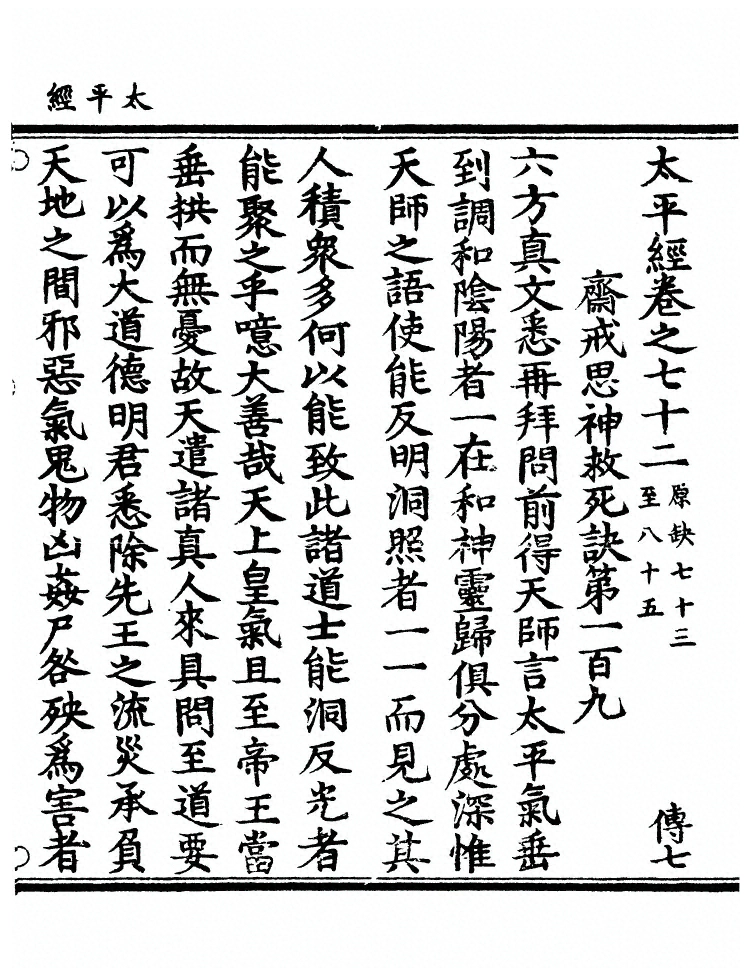 太平經
太平經卷之七十二
原缺七十三
至八十五
傳七
齋戒思神救死訣第一百九
六方真文悉再拜問前得天師言太平氣垂
到調和陰陽者一在和神靈歸俱分處深惟
天師之語使能反明洞照者一一而見之其
人積衆多何以能致此諸道士能洞反光者
能聚之乎噫大善哉天上皇氣且至帝王當
垂拱而無憂故天遣諸真人來具問至道要
可以爲大道德明君悉除先王之流災承負
天地之間邪惡氣鬼物凶姦尸咎殃爲害者